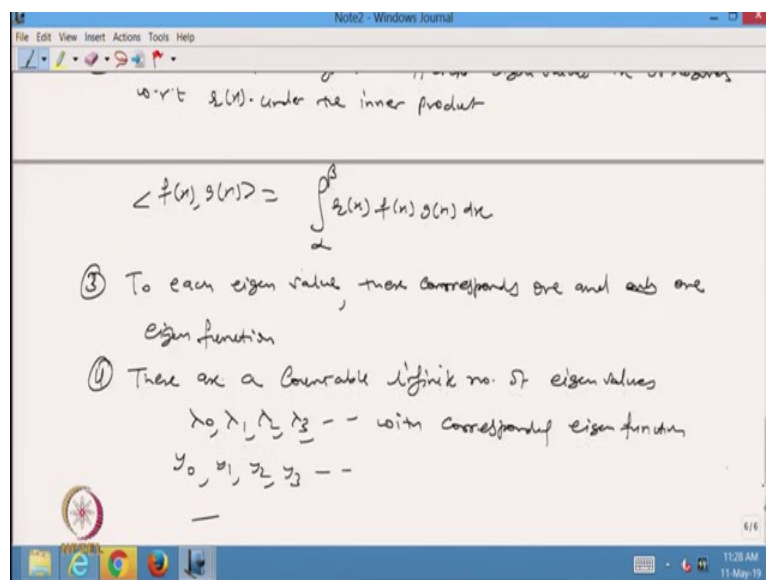 Note2 - Windows Journal
File Edit View Insert Actions Tools Help
eigen values
w.r.t r(x). under the inner product
< f(x), g(x)> = ∫_α^β r(x) f(x) g(x) dx
③ To each eigen value, there corresponds one and one
eigen function
④ There are a Countable infinite no. of eigen values
λ0, λ1, λ2, λ3 - - with corresponding eigen function
y0, y1, y2, y3 - -
6/6
NPTEL
11:28 AM
11-May-19